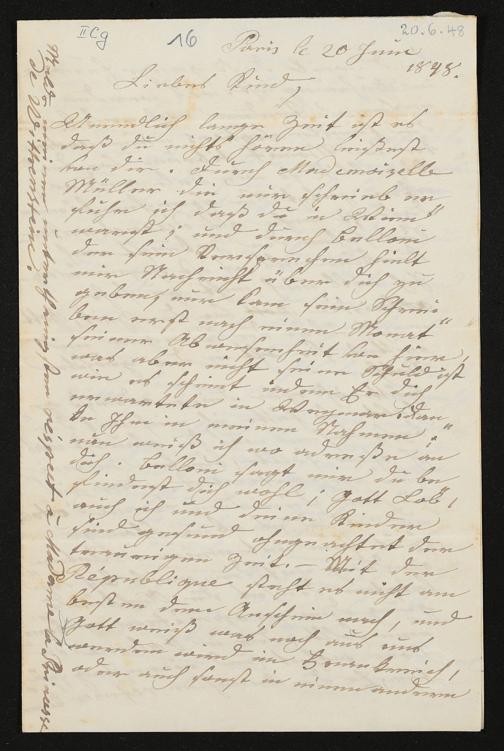 II Cg
16
20.6.48
Paris le 20 Juin
1848.
Liebes Kind,
Unendlich lange Zeit ist es
daß du nichts hören ließest
von dir. Durch Mademoiselle
Müller die mir schrieb er
fuhr ich daß du in Wien
warest; und durch Belloni
der sein Versprechen hielt
mir Nachricht über dich zu
geben, nur kam sein Schrei
ben erst nach einem Monat
seiner Abwesenheit von hier,
was aber nicht seine Schuld ist
wie es scheint indem Er dich
erwartete in Weymar. Dan
ke Ihm in meinem Nahmen
nun weiß ich wo adreße an
dich. Belloni sagt mir du be
findest dich wohl, Gott Lob,
auch ich und deine Kinder
sind gesund ohngeachtet der
traurigen Zeit. – Mit der
République steht es nicht am
besten dem Anschein nach, und
Gott weiß was noch aus uns
werden wird in Frankreich,
oder auch sonst in einem andern
Melde meinen unterthänigsten réspect à Madame la Prinzesse
de W.